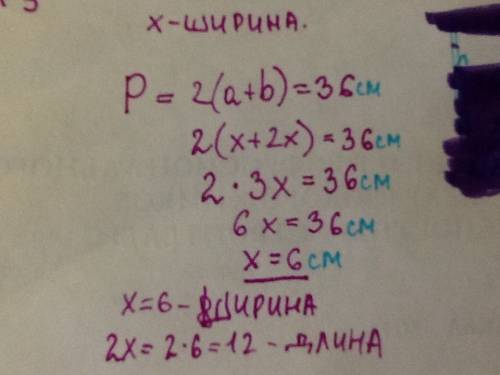 x-ШИРИНА.
P = 2(a+b)=36см
2(x+2x)=36см
2·3x=36см
6x=36см
x=6см
x=6-ШИРИНА
2x=2·6=12-ДЛИНА